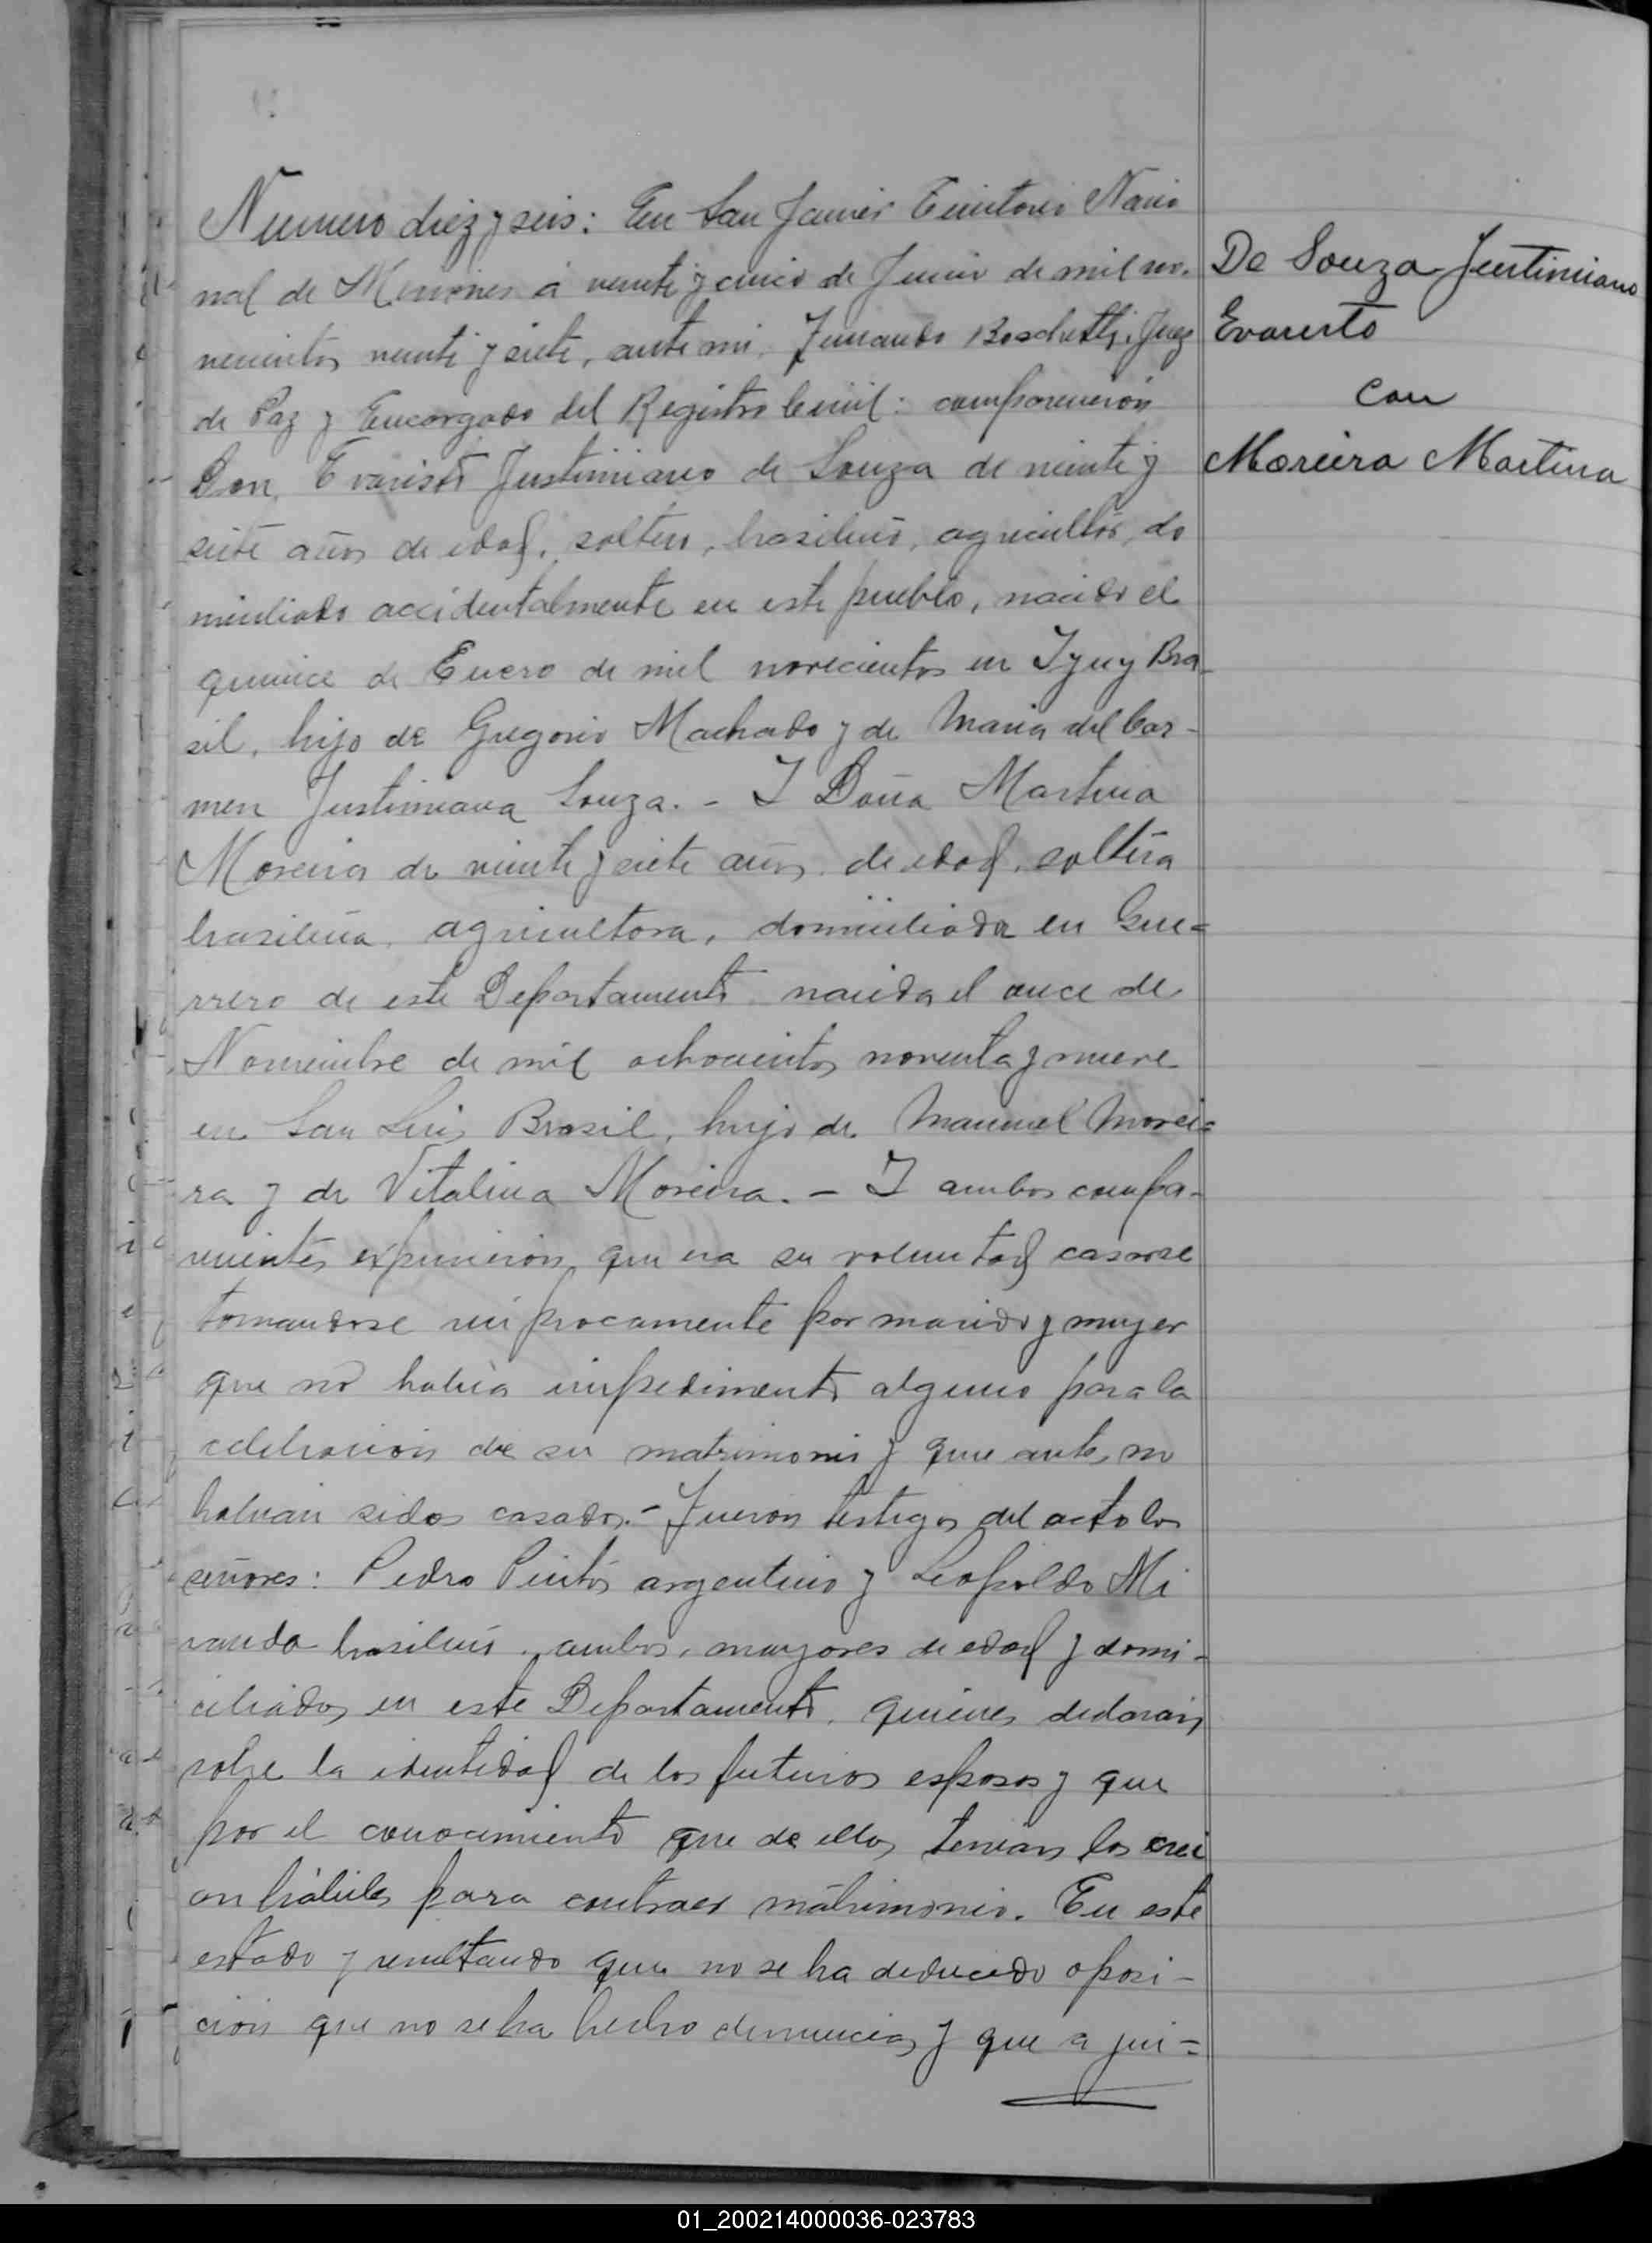 Numero diez y seis: En San Javier Territorio Nacio
nal de Misiones á veinte y cinco de Junio de mil no-
vecientos veinte y siete, ante mi, Fernando Boschetti, Juez
de Paz y Encargado del Registro Civil: comparecieron
Don Evaristo Justiniano de Souza de veinte y
siete años de edad, soltero, brasileño, agricultor, do
miciliado accidentalmente en este pueblo, nacido el
quince de Enero de mil novecientos en Yjuy Bra-
sil, hijo de Gregorio Machado y de Maria del Car-
men Justiniana Souza. - I Doña Martina
Moreira de veinte y siete años de edad, soltera
brasileña, agricultora, domiciliada en Gue=
rrero de este Departamento nacida el once de
Noviembre de mil ochocientos noventa y nueve
en San Luis Brasil, hijo de Manuel Morei=
ra y de Vitalina Moreira. - I ambos compa-
recientes expusieron que era su voluntad casarse
tomandose reciprocamente por marido y mujer
que no habia impedimento alguno para la
celebracion de su matrimonio y que antes no
habian sidos casados. - Fueron testigos del acto los
señores: Pedro Pintos argentino y Leopoldo Mi
randa brasileño, ambos, mayores de edad y domi-
ciliados en este Departamento, quienes declaran
sobre la identidad de los futuros esposos y que
por el conocimiento que de ellos tenian los crei
an hábiles para contraer matrimonio. En este
estado y resultando que no se ha deducido oposi-
ción que no se ha hecho denuncia y que a jui=
De Souza Justiniano
Evaristo
con
Moreira Martina
01_200214000036-023783